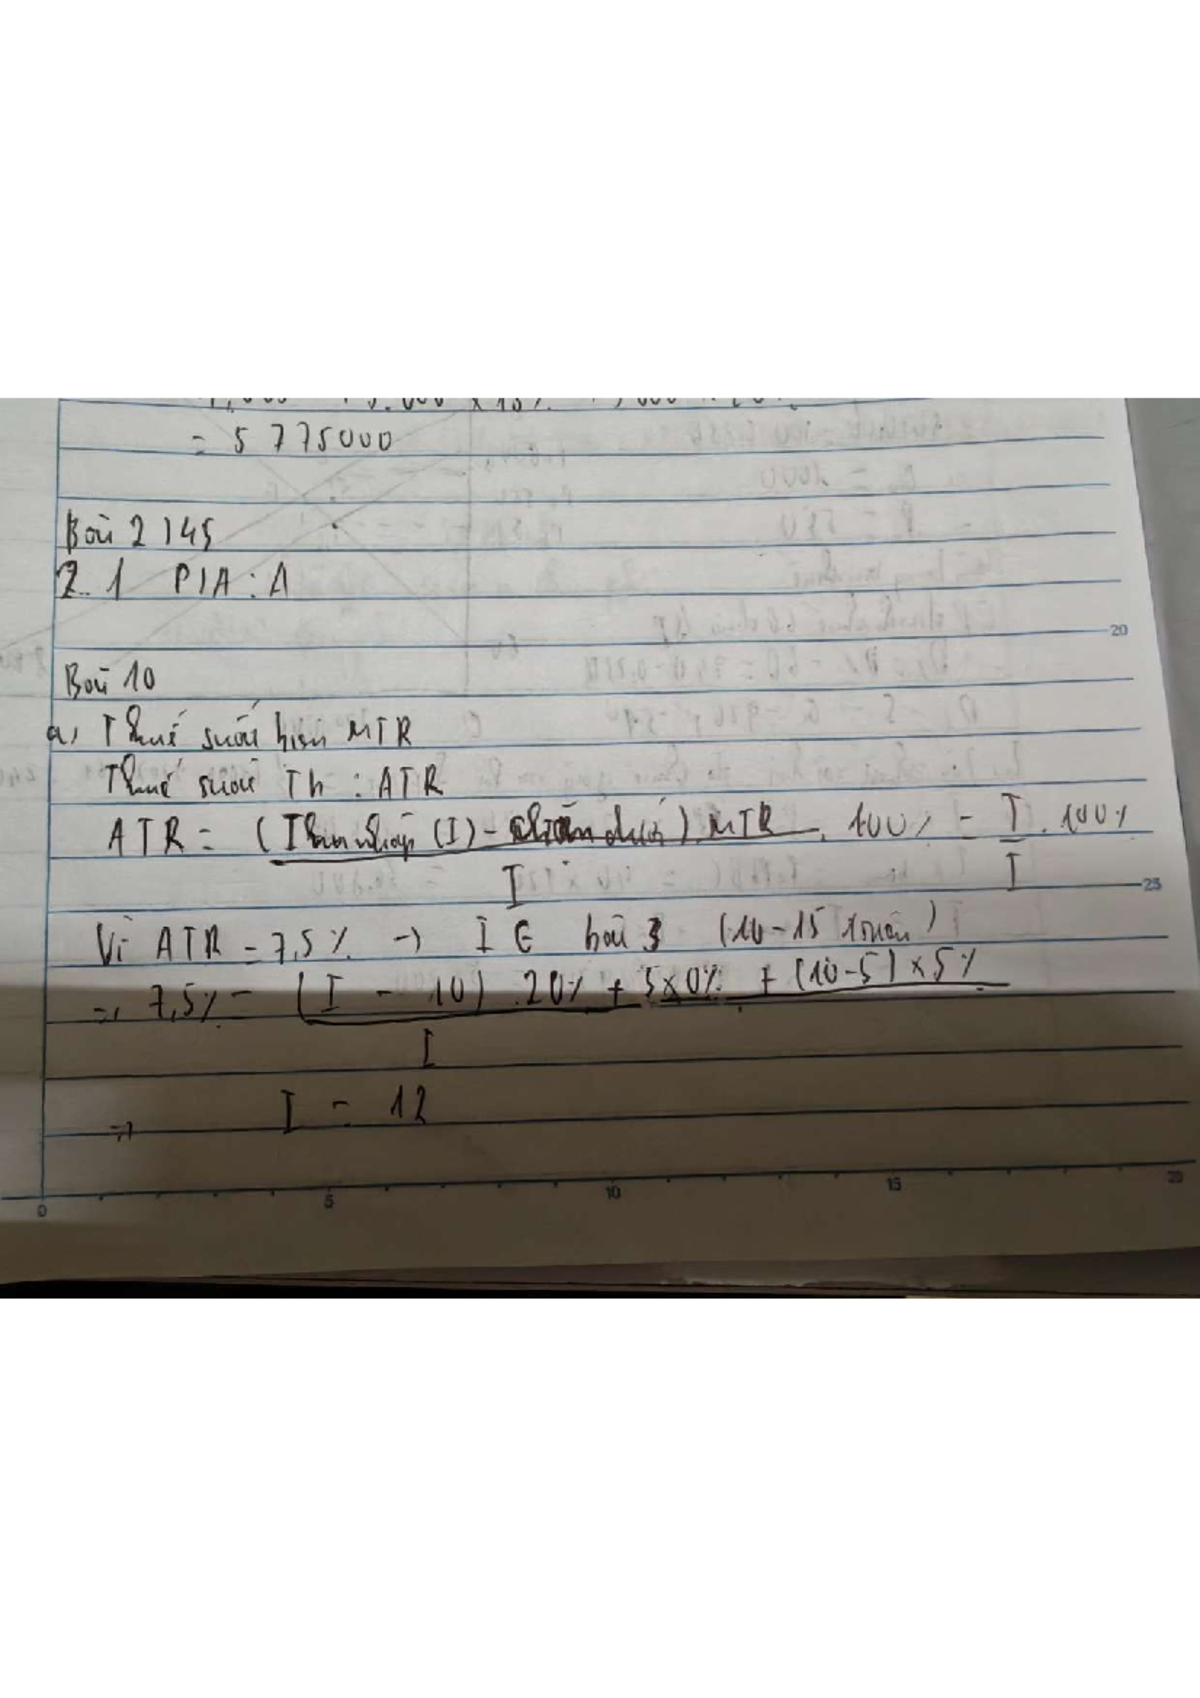 = 5 775000
Bài 2 145
2.1 PIA : A
20
Bài 10
a, Thuế suất biên MTR
Thuế suất Tb : ATR
ATR = (Thu nhập (I) - chặn dưới) MTR . 100% = T . 100%
I I
25
Vì ATR = 7,5% → I ∈ bậc 3 (10 - 15 triệu)
=> 7,5% = (I - 10) . 20% + 5x0% + (10-5) x 5%
I
=> I = 12
0 5 10 15 20